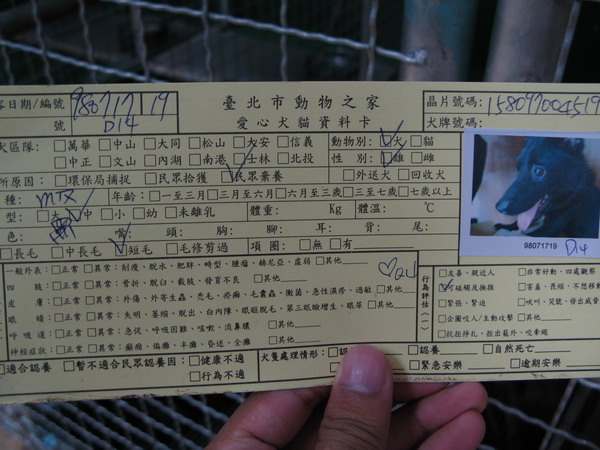 容日期/編號 980717 19 臺北市動物之家 晶片號碼:
號 D14 愛心犬貓資料卡 犬牌號碼:
犬區隊: □萬華 □中山 □大同 □松山 □大安 □信義 動物別: □犬 □貓
□中正 □文山 □內湖 □南港 □士林 □北投 性別: □雄 □雌
所原因: □環保局捕捉 □民眾拾獲 □民眾棄養 □外送犬 □回收犬
種: mix 年齡: □一至三月 □三月至六月 □六月至三歲 □三至七歲 □七歲以上
型: □大 □中 □小 □幼 □未離乳 體重: Kg 體溫: ℃
色: 嘴: 頭: 胸: 腳: 耳: 背: 尾:
□長毛 □中長毛 □短毛 □毛修剪過 項圈: □無 □有
98071719 D14
一般外表: □正常 □異常: 削瘦、脫水、肥胖、畸型、腫瘤、赫尼亞、虛弱 □其他
四肢: □正常 □異常: 骨折、脫臼、截肢、發育不良 □其他
皮膚: □正常 □異常: 外傷、外寄生蟲、禿毛、疥癬、毛囊蟲、黴菌、急性濕疹、過敏 □其他
眼睛: □正常 □異常: 失明、萎縮、脫出、白內障、眼瞼脫毛、第三眼瞼增生、眼屎 □其他
呼吸道: □正常 □異常: 急促、呼吸困難、咳嗽、流鼻膿 □其他
神經症狀: □正常 □異常: 癲癇、偏癱、半癱、昏迷、全癱 □其他
行為評估(一)
□友善、親近人 □非常好動、四處觀察
□可碰觸及撫摸 □害羞、畏縮、不想移動
□緊張、緊迫
□企圖咬人/主動攻擊 □其他
□抗拒掙扎、拒出籠外、咬牽繩
□適合認養 □暫不適合民眾認養因: □健康不適 犬隻處理情形: □認 □認養 □自然死亡
□行為不適 □緊急安樂 □逾期安樂